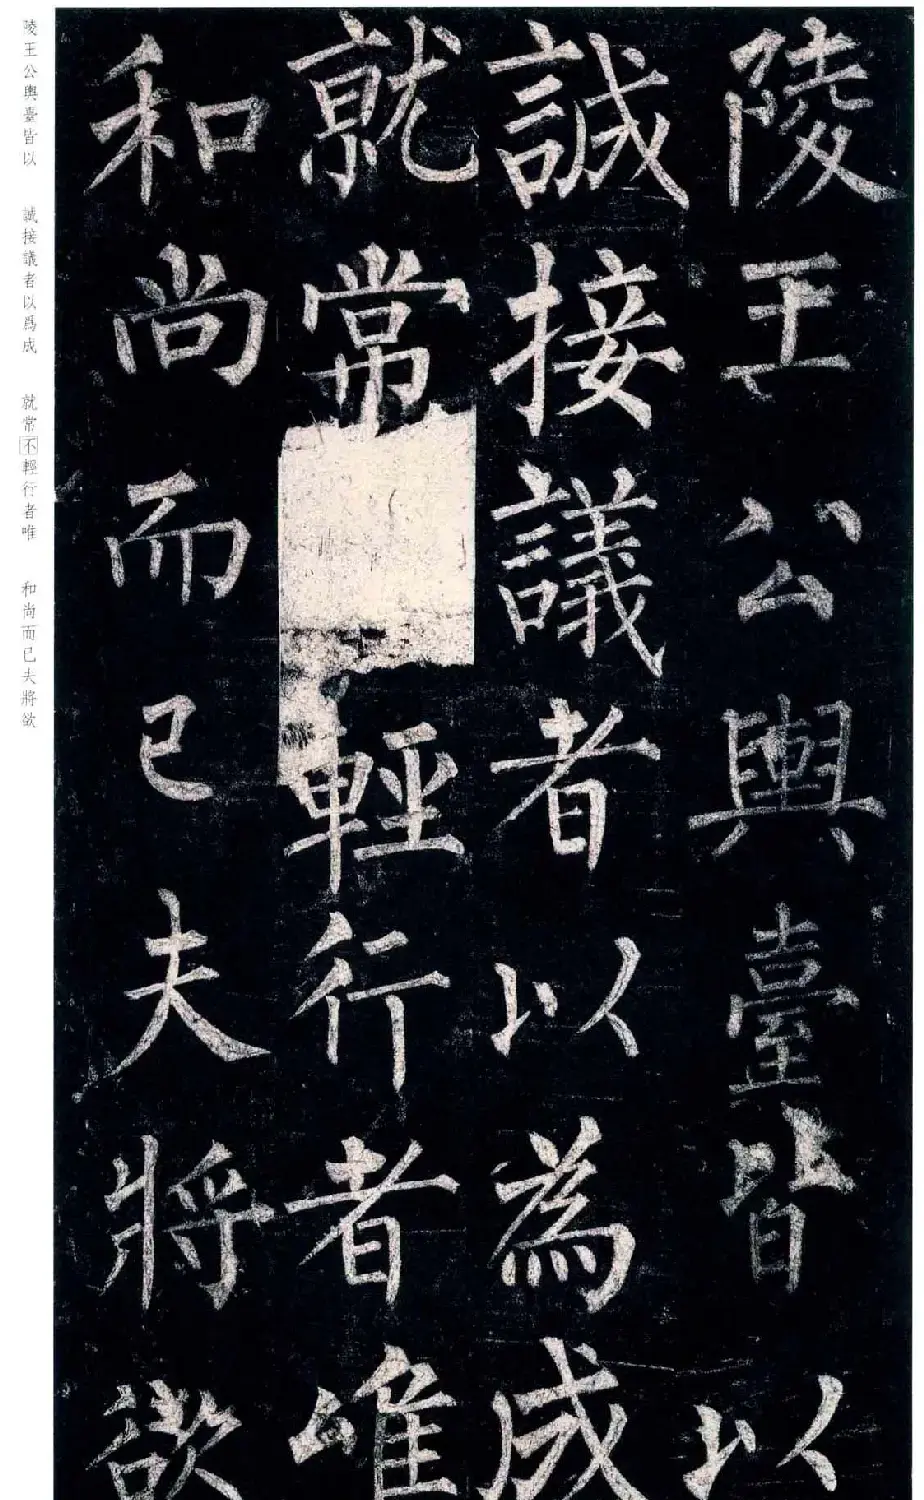 陵王公輿臺皆以
誠接議者以爲成
就常輕行者唯
和尚而已夫將欲
陵王公輿臺皆以 誠接議者以爲成 就常不輕行者唯 和尚而已夫將欲